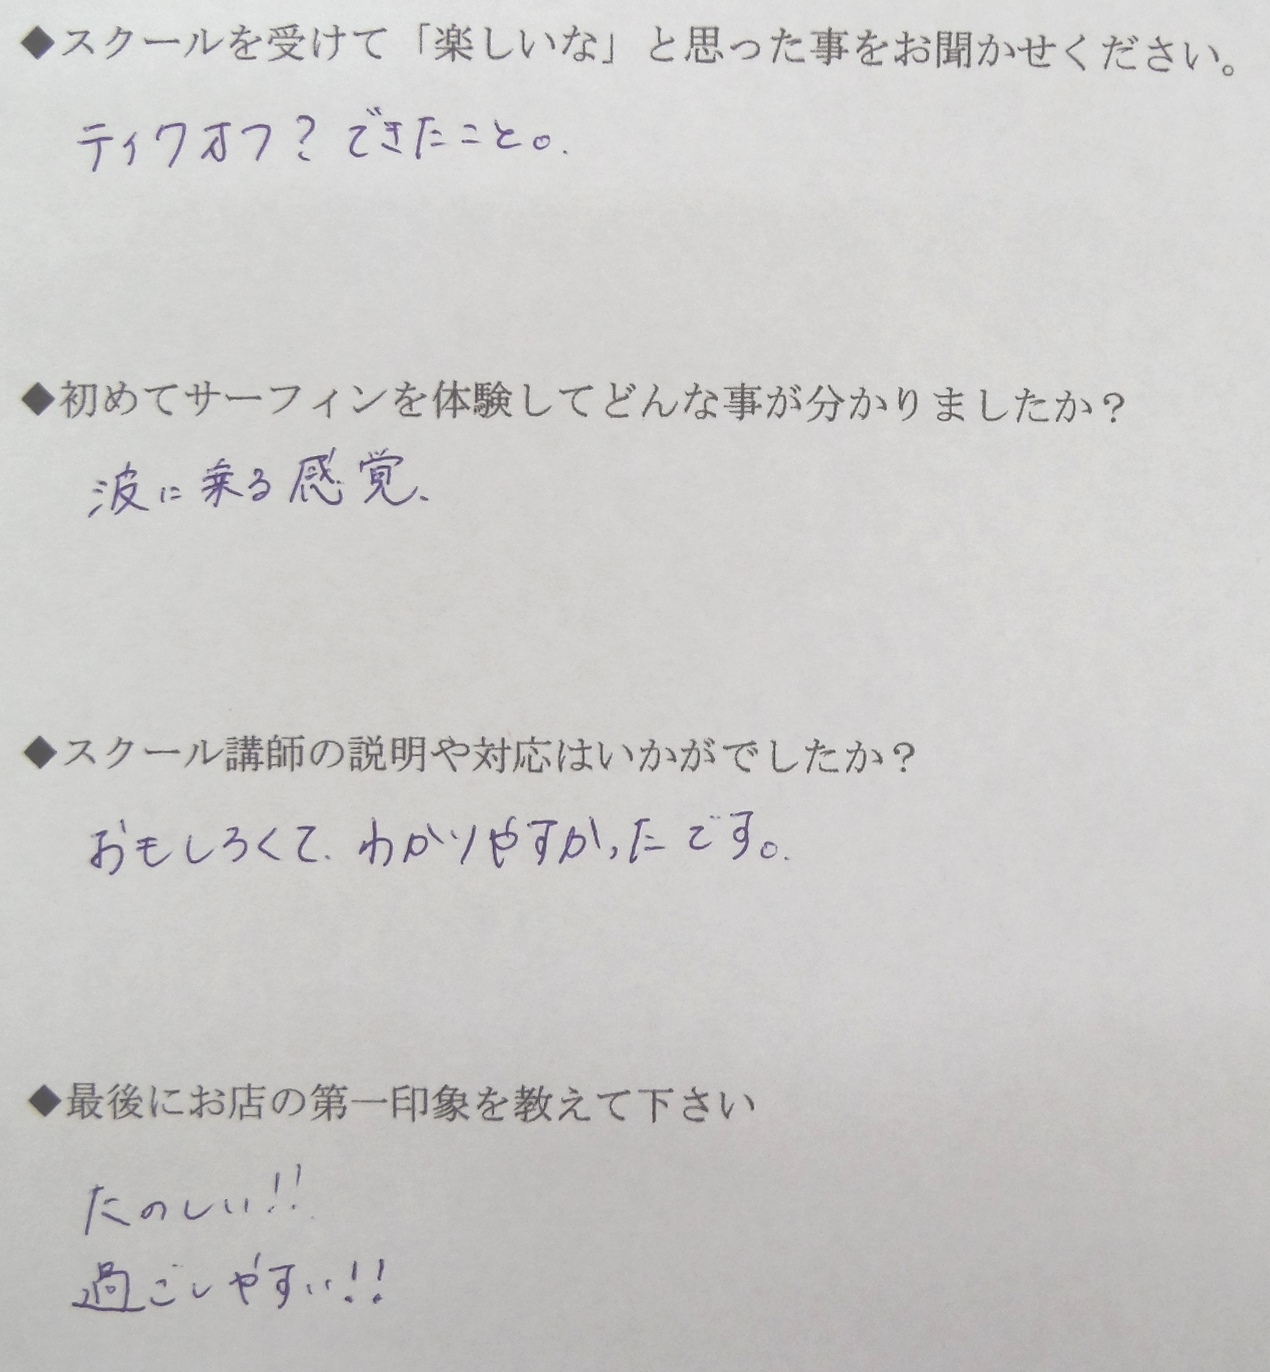 ◆スクールを受けて「楽しいな」と思った事をお聞かせください。
ティクオフ？できたこと。
◆初めてサーフィンを体験してどんな事が分かりましたか？
波に乗る感覚、
◆スクール講師の説明や対応はいかがでしたか？
おもしろくて、わかりやすかったです。
◆最後にお店の第一印象を教えて下さい
たのしい!!
過ごしやすい!!